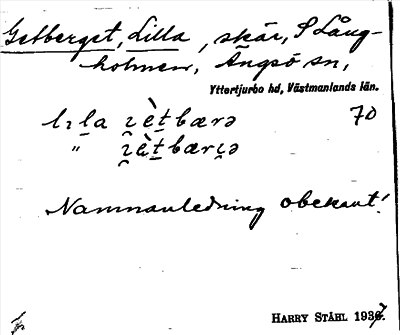 Getberget, Lilla, skär, S Lång-
holmen, Ängsö sn,
Yttertjurbo hd, Västmanlands län.
lɪla ɪ̯ètbærə 70
" ɪ̯ètbærɪ̯ə
Namnanledning obekant!
HARRY STÅHL 1937.